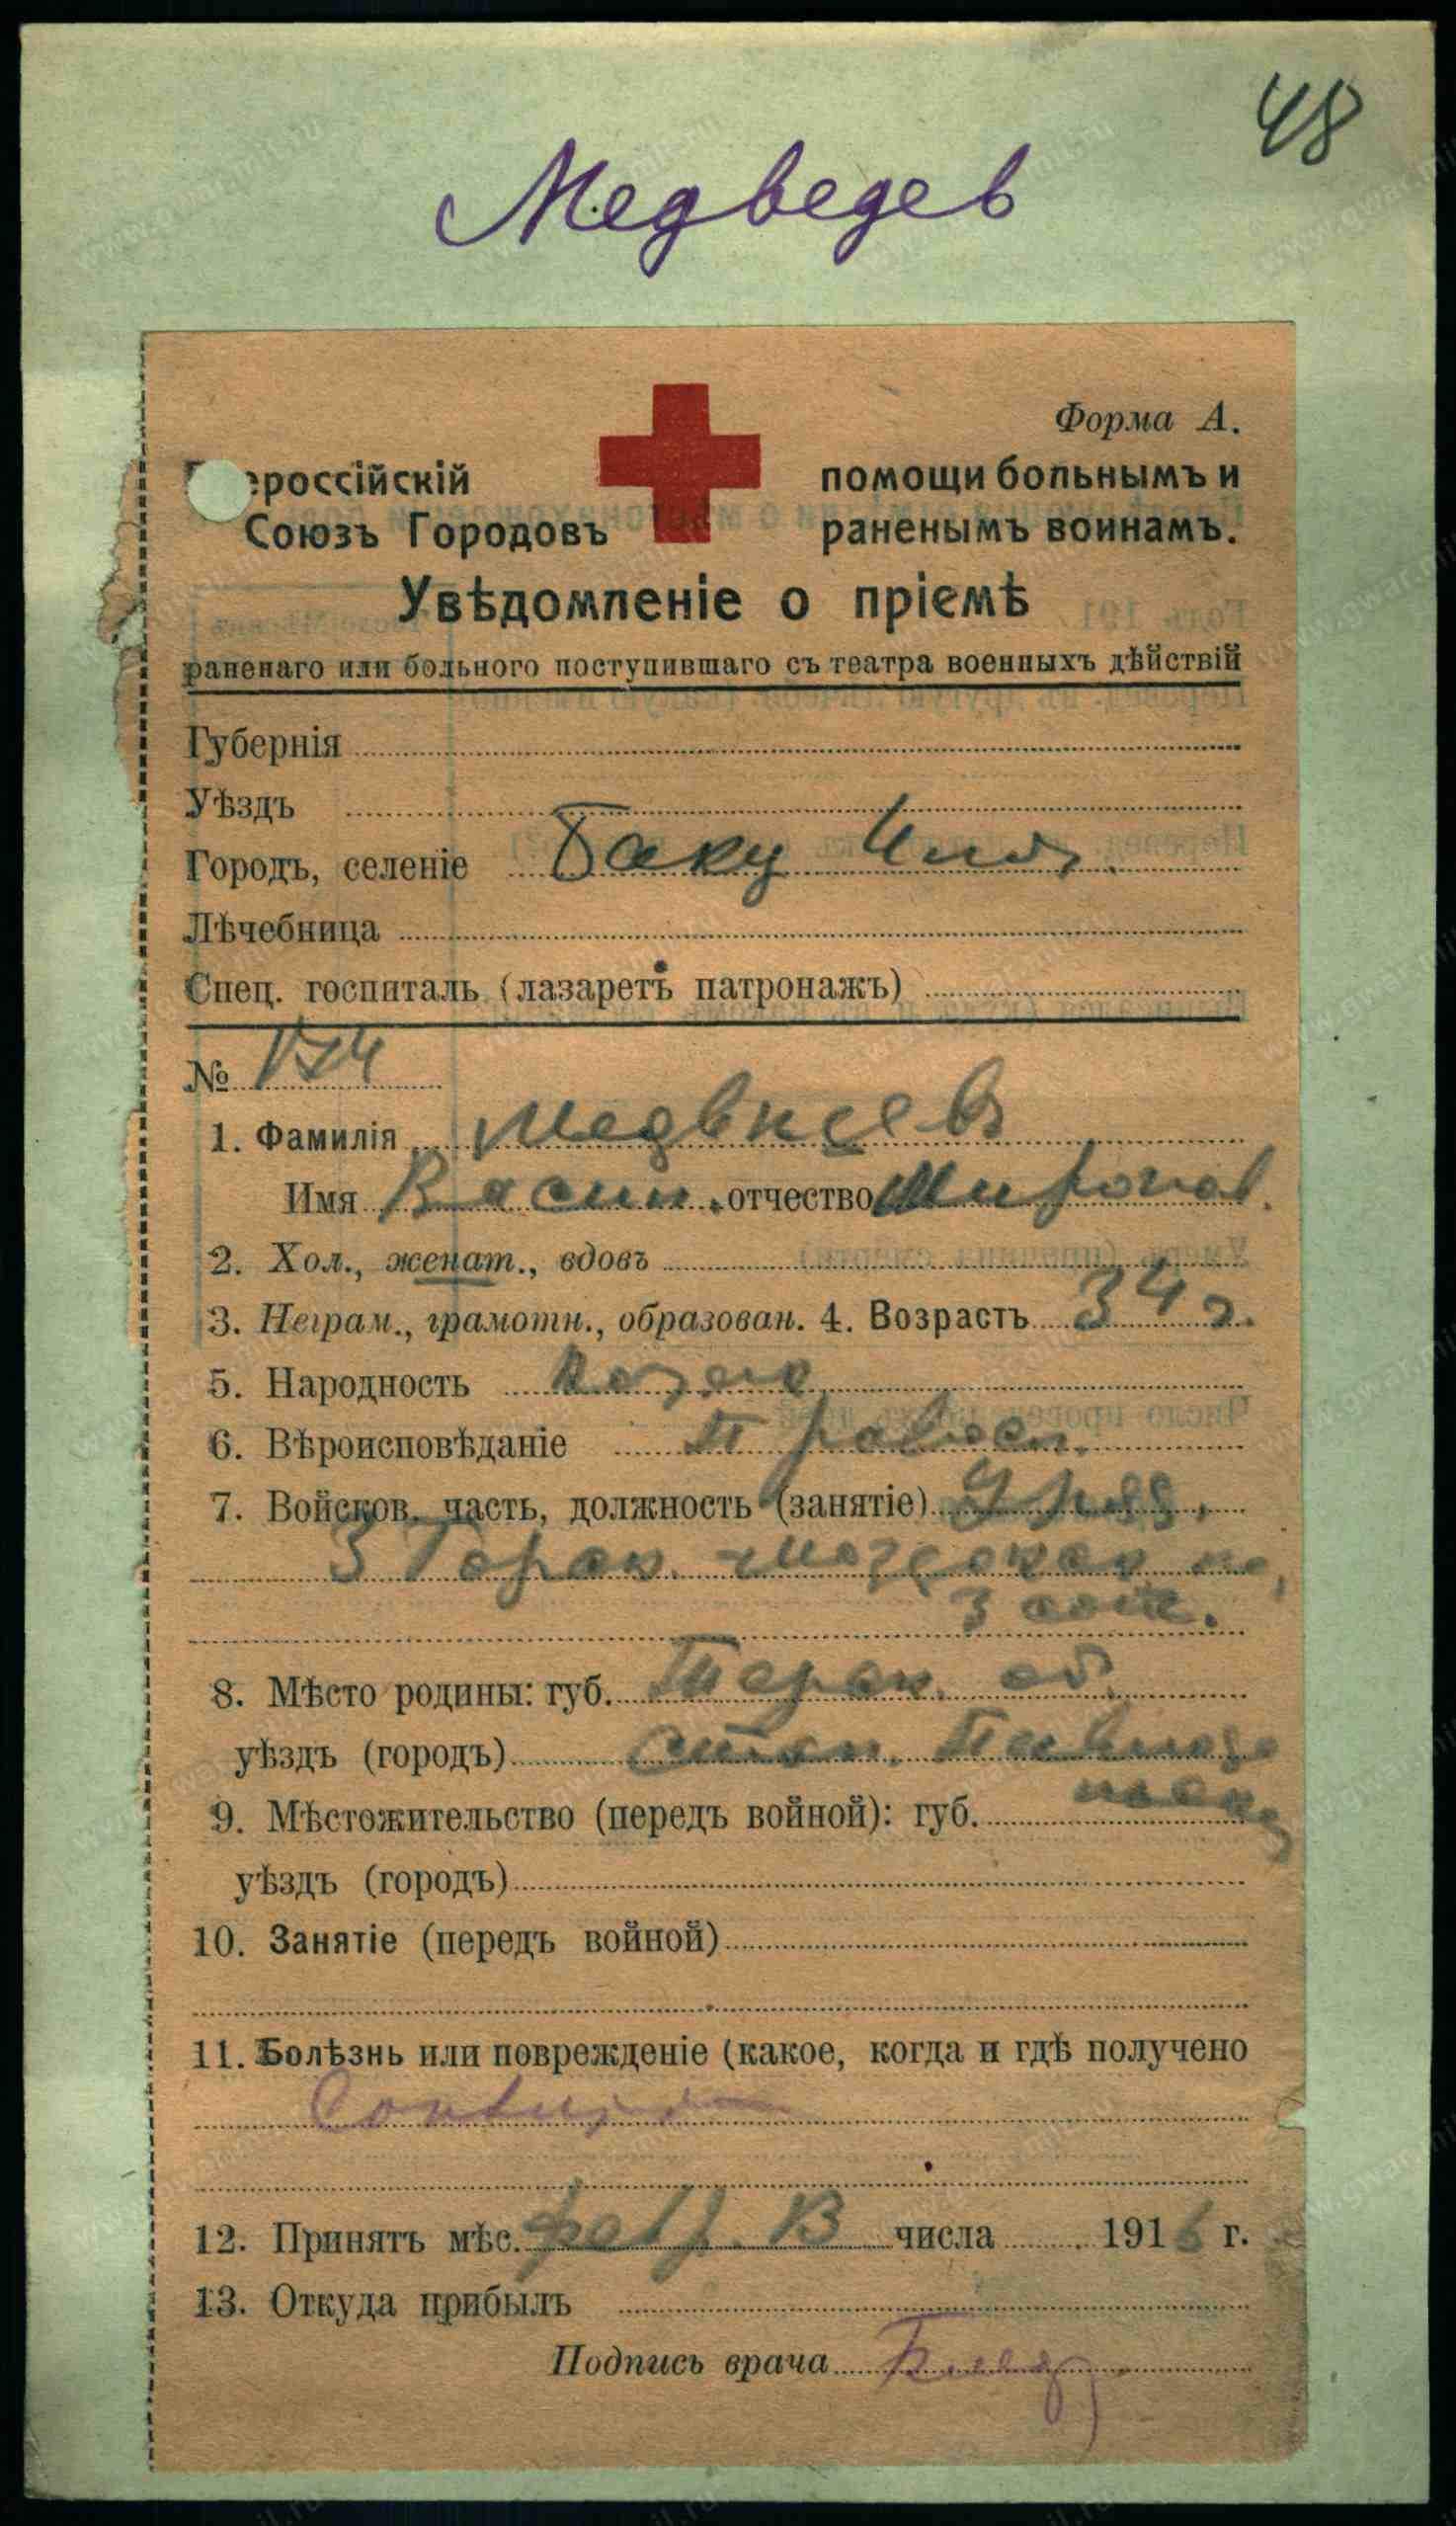 48
Медведев
Форма А.
ероссійскій помощи больнымъ и
Союзъ Городовъ раненымъ воинамъ.
Увѣдомленіе о пріемѣ
раненаго или больного поступившаго съ театра военныхъ дѣйствій
Губернія
Уѣздъ
Городъ, селеніе Баку
Лѣчебница
Спец. госпиталь (лазаретъ патронажъ)
№ 174
1. Фамилія Медвѣдевъ
Имя Васил. отчество Миронов.
2. Хол., женат., вдовъ
3. Неграм., грамотн., образован. 4. Возрастъ 34 г.
5. Народность казак
6. Вѣроисповѣданіе Правосл.
7. Войсков. часть, должность (занятіе) Уряд.
3 Горск. Моздокск. п.
3 сот.
8. Мѣсто родины: губ. Терск. об.
уѣздъ (городъ) стан.
9. Мѣстожительство (передъ войной): губ.
уѣздъ (городъ)
10. Занятіе (передъ войной)
11. Болѣзнь или поврежденіе (какое, когда и гдѣ получено
Contusio
12. Принятъ мѣс. февр. 13 числа 1916 г.
13. Откуда прибылъ
Подпись врача